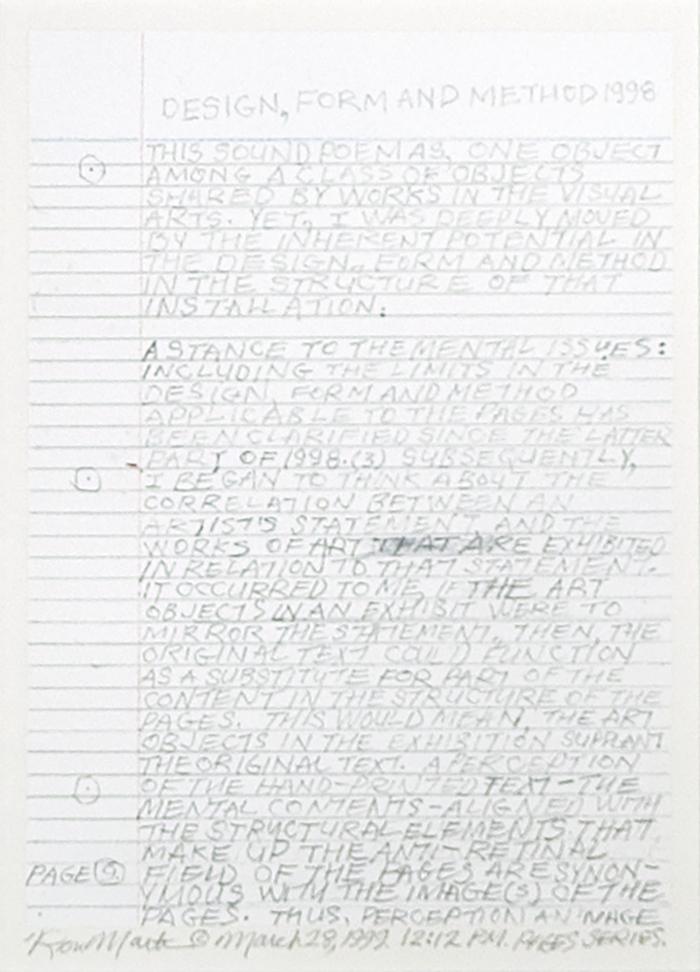 DESIGN, FORM AND METHOD 1998
THIS SOUND POEM AS, ONE OBJECT
AMONG A CLASS OF OBJECTS
SHARED BY WORKS IN THE VISUAL
ARTS. YET, I WAS DEEPLY MOVED
BY THE INHERENT POTENTIAL IN
THE DESIGN, FORM AND METHOD
IN THE STRUCTURE OF THAT
INSTALLATION.
A STANCE TO THE MENTAL ISSUES:
INCLUDING THE LIMITS IN THE
DESIGN, FORM AND METHOD
APPLICABLE TO THE PAGES HAS
BEEN CLARIFIED SINCE THE LATTER
PART OF 1998.(3) SUBSEQUENTLY,
I BEGAN TO THINK ABOUT THE
CORRELATION BETWEEN AN
ARTIST'S STATEMENT AND THE
WORKS OF ART THAT ARE EXHIBITED
IN RELATION TO THAT STATEMENT.
IT OCCURRED TO ME, IF THE ART
OBJECTS IN AN EXHIBIT WERE TO
MIRROR THE STATEMENT, THEN, THE
ORIGINAL TEXT COULD FUNCTION
AS A SUBSTITUTE FOR PART OF THE
CONTENT IN THE STRUCTURE OF THE
PAGES. THIS WOULD MEAN, THE ART
OBJECTS IN THE EXHIBITION SUPPLANT
THE ORIGINAL TEXT. A PERCEPTION
OF THE HAND-PRINTED TEXT-THE
MENTAL CONTENTS-ALIGNED WITH
THE STRUCTURAL ELEMENTS THAT
MAKE UP THE ANTI-RETINAL
PAGE 9. FIELD OF THE PAGES ARE SYNON-
YMOUS WITH THE IMAGE(S) OF THE
PAGES. THUS, PERCEPTION AN IMAGE
© March 28, 1999. 12:12 P.M. PAGES SERIES.